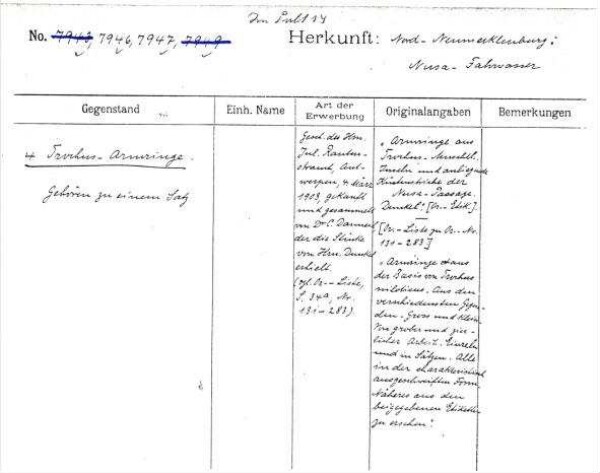 Im Pult 14
No. 7943, 7946, 7947, 7949
Herkunft: Nord-Neumecklenburg:
Nusa-Fahrwasser
Gegenstand
Einh. Name
Art der
Erwerbung
Originalangaben
Bemerkungen
4 Trochus-Armringe.
Gehören zu einem Satz
Gesch. des Hrn.
Jul. Rauten-
strauch, Ant-
werpen, 4 März
1903, gekauft
und gesammelt
von Dr C. Danneil
der die Stücke
von Hrn. Dunkel
erhielt.
(vgl. Or.-Liste,
S. 34a, No.
131-283)
"Armringe aus
Trochus-Muschel.
Inseln und anliegende
Küstenstriche der
Nusa-Passage.
Dunkel." [Or.-Etik.].
[Or.-Liste zu Or.-No.
131-283]
"Armringe aus
der Basis von Trochus
niloticus. Aus den
verschiedensten Gegen-
den. Gross und klein.
Von grober und zier-
licher Arbeit. Einzeln
und in Sätzen. Alle
in der charakteristisch
ausgeschweiften Form.
Näheres aus den
beigegebenen Etiketten
zu ersehen".